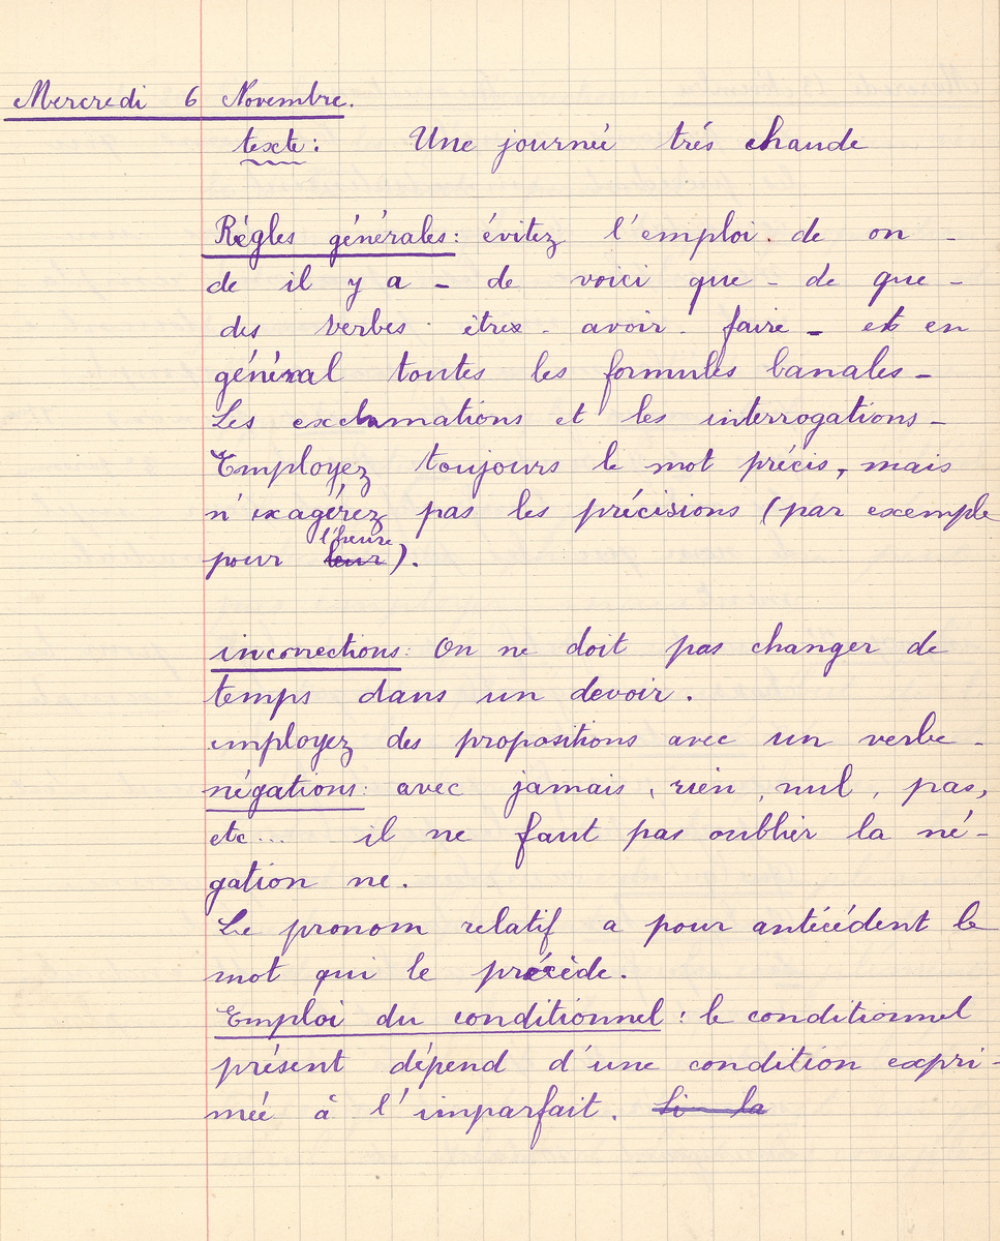 Mercredi 6 Novembre.
texte : Une journée trés chaude
Régles générales : évitez l'emploi. de on -
de il y a - de voici que - de que -
des verbes être - avoir - faire - et en
général toutes les formules banales -
Les exclamations et les interrogations -
Employez toujours le mot précis, mais
n'exagérez pas les précisions (par exemple
l'heure
pour leur).
incorrections : On ne doit pas changer de
temps dans un devoir.
employez des propositions avec un verbe -
négations : avec jamais, rien, nul, pas,
etc... il ne faut pas oublier la né-
gation ne.
Le pronom relatif a pour antécédent le
mot qui le précède.
Emploi du conditionnel : le conditionnel
présent dépend d'une condition expri-
mée à l'imparfait. Si la